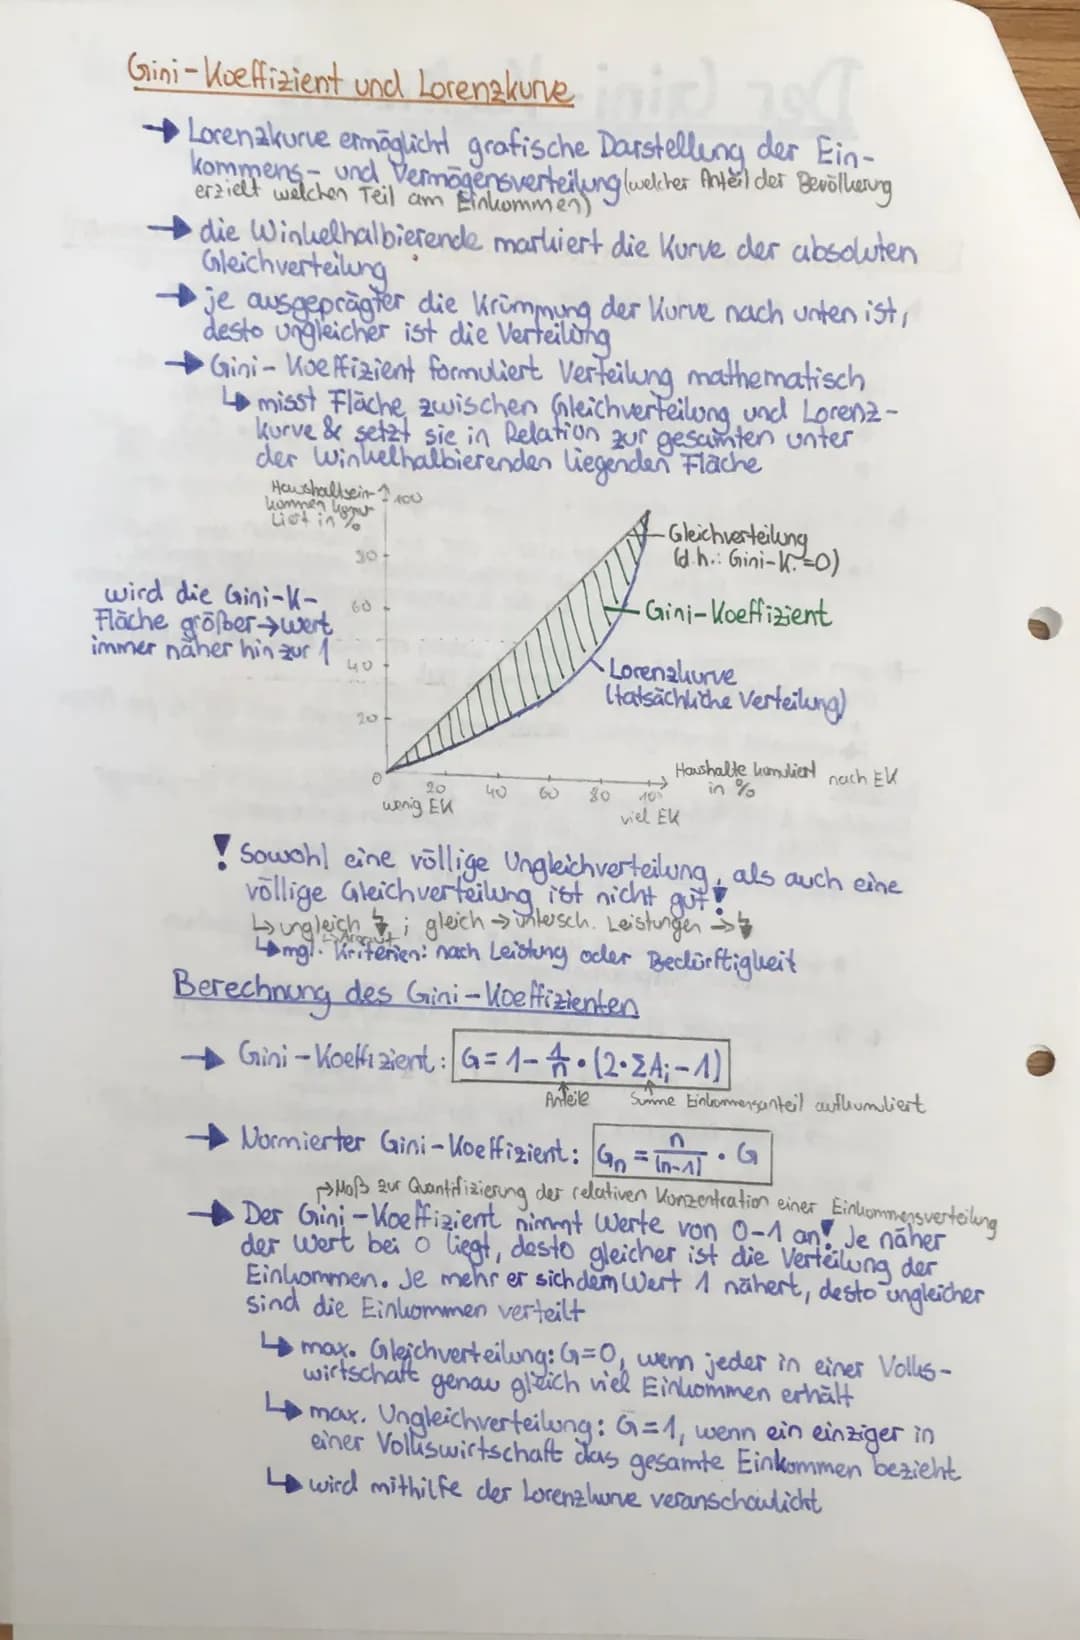 Gini-Koeffizient und Lorenzkurve
→ Lorenzkurve ermöglicht grafische Darstellung der Ein-
kommens- und Vermögensverteilung (welcher Anteil der Bevölkerung
erzielt welchen Teil am Einkommen)
→ die Winkelhalbierende markiert die Kurve der absoluten
Gleichverteilung
→ je ausgeprägter die Krümmung der Kurve nach unten ist,
desto ungleicher ist die Verteilung
→ Gini-Koeffizient formuliert Verteilung mathematisch
↳ misst Fläche zwischen Gleichverteilung und Lorenz-
kurve & setzt sie in Relation zur gesamten unter
der Winkelhalbierenden liegenden Fläche
Haushaltsein-
kommen kumu-
liert in %
100
80
60
40
20
0
wird die Gini-K-
Fläche größer → Wert
immer näher hin zur 1
Gleichverteilung
(d.h.: Gini-K.=0)
Gini-Koeffizient
Lorenzkurve
(tatsächliche Verteilung)
20 40 60 80 100
wenig EK
viel EK
Haushalte kumuliert nach EK
in %
! Sowohl eine völlige Ungleichverteilung, als auch eine
völlige Gleichverteilung ist nicht gut!
↳ ungleich ↯; gleich → untersch. Leistungen → ↯
↳ Armut
↳ mgl. Kriterien: nach Leistung oder Bedürftigkeit
Berechnung des Gini-Koeffizienten
→ Gini-Koeffizient: G = 1 - 1/n · (2·ΣAi - 1)
Anteile Summe Einkommensanteil aufkumuliert
→ Normierter Gini-Koeffizient: Gn = n/(n-1) · G
↳ Maß zur Quantifizierung der relativen Konzentration einer Einkommensverteilung
→ Der Gini-Koeffizient nimmt Werte von 0-1 an! Je näher
der Wert bei 0 liegt, desto gleicher ist die Verteilung der
Einkommen. Je mehr er sich dem Wert 1 nähert, desto ungleicher
sind die Einkommen verteilt
↳ max. Gleichverteilung: G=0, wenn jeder in einer Volks-
wirtschaft genau gleich viel Einkommen erhält
↳ max. Ungleichverteilung: G=1, wenn ein einziger in
einer Volkswirtschaft das gesamte Einkommen bezieht
↳ wird mithilfe der Lorenzkurve veranschaulicht